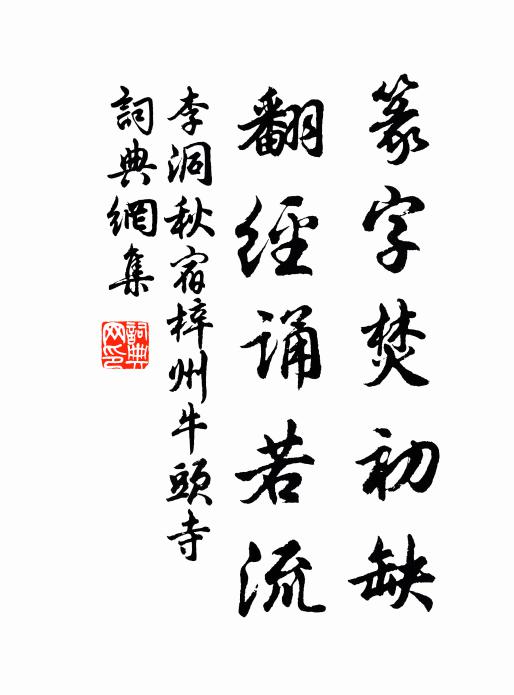 篆字焚初缺
翻經誦若流
李洞秋宿梓州牛頭寺
詞典網集
詞典網印